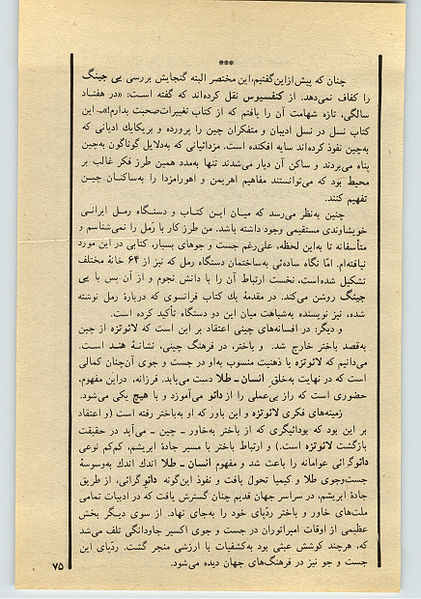 ***
چنان که پیش‌ازاین‌گفتیم،این مختصر البته گنجایش بررسی یی جینگ
را کفاف نمی‌دهد. از کنفسیوس نقل کرده‌اند که گفته است: «در هفتاد
سالگی، تازه شهامت آن را یافتم که از کتاب تغییرات‌صحبت بدارم!»ـ. این
کتاب نسل در نسل ادیبان و متفکران چین را پرورده و بریکایك ادیانی که
به‌چین نفوذ کرده‌اند سایه افکنده است. مزدائیانی که به‌دلایل گوناگون به‌چین
پناه می‌بردند و ساکن آن دیار می‌شدند تنها به‌مدد همین طرز فکر غالب بر
محیط بود که می‌توانستند مفاهیم اهریمن و اهورامزدا را به‌ساکنان چیـن
تفهیم کنند.
چنین به‌نظر می‌رسد که میـان ایـن کتـاب و دستگـاه رمـل ایـرانـی
خویشاوندی مستقیمی وجود داشته باشد. من طرز کار با رَمل را نمی‌شناسم و
متأسفانه تا به‌این لحظه، علی‌رغم جست و جوهای بسیار، کتابی در این مورد
نیافته‌ام. امّا نگاه ساده‌ئی به‌ساختمان دستگاه رمل که نیز از ۶۴ خانهٔ مختلف
تشکیل شده‌است، نخست ارتباط آن را با دانش نجوم و از آن بس با یی
جینگ روشن می‌کند. در مقدمهٔ یك کتاب فرانسوی که دربارهٔ رمل نوشته
شده، نیز نویسنده به‌شباهت میان این دو دستگاه، تأکید کرده است.
و دیگر: در افسانه‌های چینی اعتقاد بر این است که لائوتزه از چین
به‌قصد باختر خارج شد. و باختر، در فرهنگ چینی، نشانـهٔ هنـد اسـت.
می‌دانیم که لائوتزه با ذهنیت منسوب به‌او در جست و جوی آن‌چنان کمالی
است که در نهایت به‌خلق انسان ـ طلا دست می‌یابد. فرزانه، دراین مفهوم،
حضوری است که راز بی‌عملی را از دائو می‌آموزد و با هیچ یکی می‌شود.
زمینه‌های فکری لائوتزه و این باور که او به‌باختر رفته است (و اعتقاد
بر این بود که بودائیگری که از باختر به‌خاور ـ چین ـ می‌آید در حقیقت
بازگشت لائوتزه است.) و ارتباط باختر با مسیر جادهٔ ابریشم، کم‌کم نوعی
دائوگرائی عوامانه را باعث شد و مفهوم انسان ـ طلا اندك اندك به‌وسوسهٔ
جست‌وجوی طلا و کیمیا تحول یافت و نفوذ این‌گونه دائوگرائی، از طریق
جادهٔ ابریشم، در سراسر جهان قدیم چنان گسترش یافت که در ادبیات تمامی
ملت‌های خاور و باختر ردّپای خود را به‌جای نهاد. از سوی دیگر بخش
عظیمی از اوقات امپراتوران در جست و جوی اکسیر جاودانگی تلف می‌شد
که، هرچند کوشش عبثی بود به‌کشفیات با ارزشی منجر گشت. ردّپای این
جست و جو نیز در فرهنگ‌های جهان دیده می‌شود.
۷۵